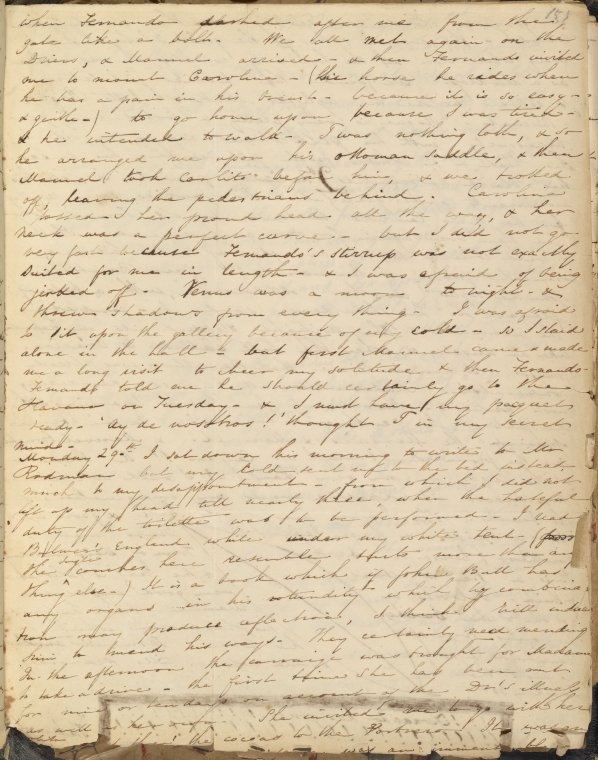 151
when Fernando dashed after me from the
gate like a bolt. We all met again on the
Driers, & Manuel arrived & then Fernando invited
me to mount Caroline - (the horse he rides when
he has a pain in his breast - because it is so easy -
& gentle -) to go home upon because I was tired -
& he intended to walk - I was nothing loth, & so
he arranged me upon his ottoman saddle, & then
Manuel took Carlito before him, & we trotted
off, leaving the pedestrians behind. Caroline
tossed her proud head all the way, & her
neck was a perfect curve - but I did not go
very fast because Fernando's stirrup was not exactly
suited for me in length - & I was afraid of being
jerked off. Venus was a moon to night - &
threw shadows from every thing - I was afraid
to sit upon the gallery because of my cold - so I staid
alone in the hall - but first Manuel came & made
me a long visit to cheer my solitude & then Fernando
Fernando told me he should certainly go to the
Havana on Tuesday - & I must have my paquets
ready - "Ay de nosotros!" thought I in my secret
mind -
Monday 29th I sat down this morning to write to Mr
Rodman but my cold sent me to the bed instead
much to my disappointment - from which I did not
lift up my head till nearly three, when the hateful
duty of the toilette was to be performed - I read
Bulwer's England while under my white tent (for
the couches here resemble tents more than any
thing else -) It is a book which if John Bull has
any organs in his rotundity which by combina-
tion may produce reflection, I think will induce
him to mend his ways. They certainly need mending
In the afternoon the carriage was brought for Madame
to take a drive - the first time she has been out
for nine or ten days on account of the Dr's illness
She invited me to go with her
as well as her own
the cocoas to the Portrero It was an
was an immense